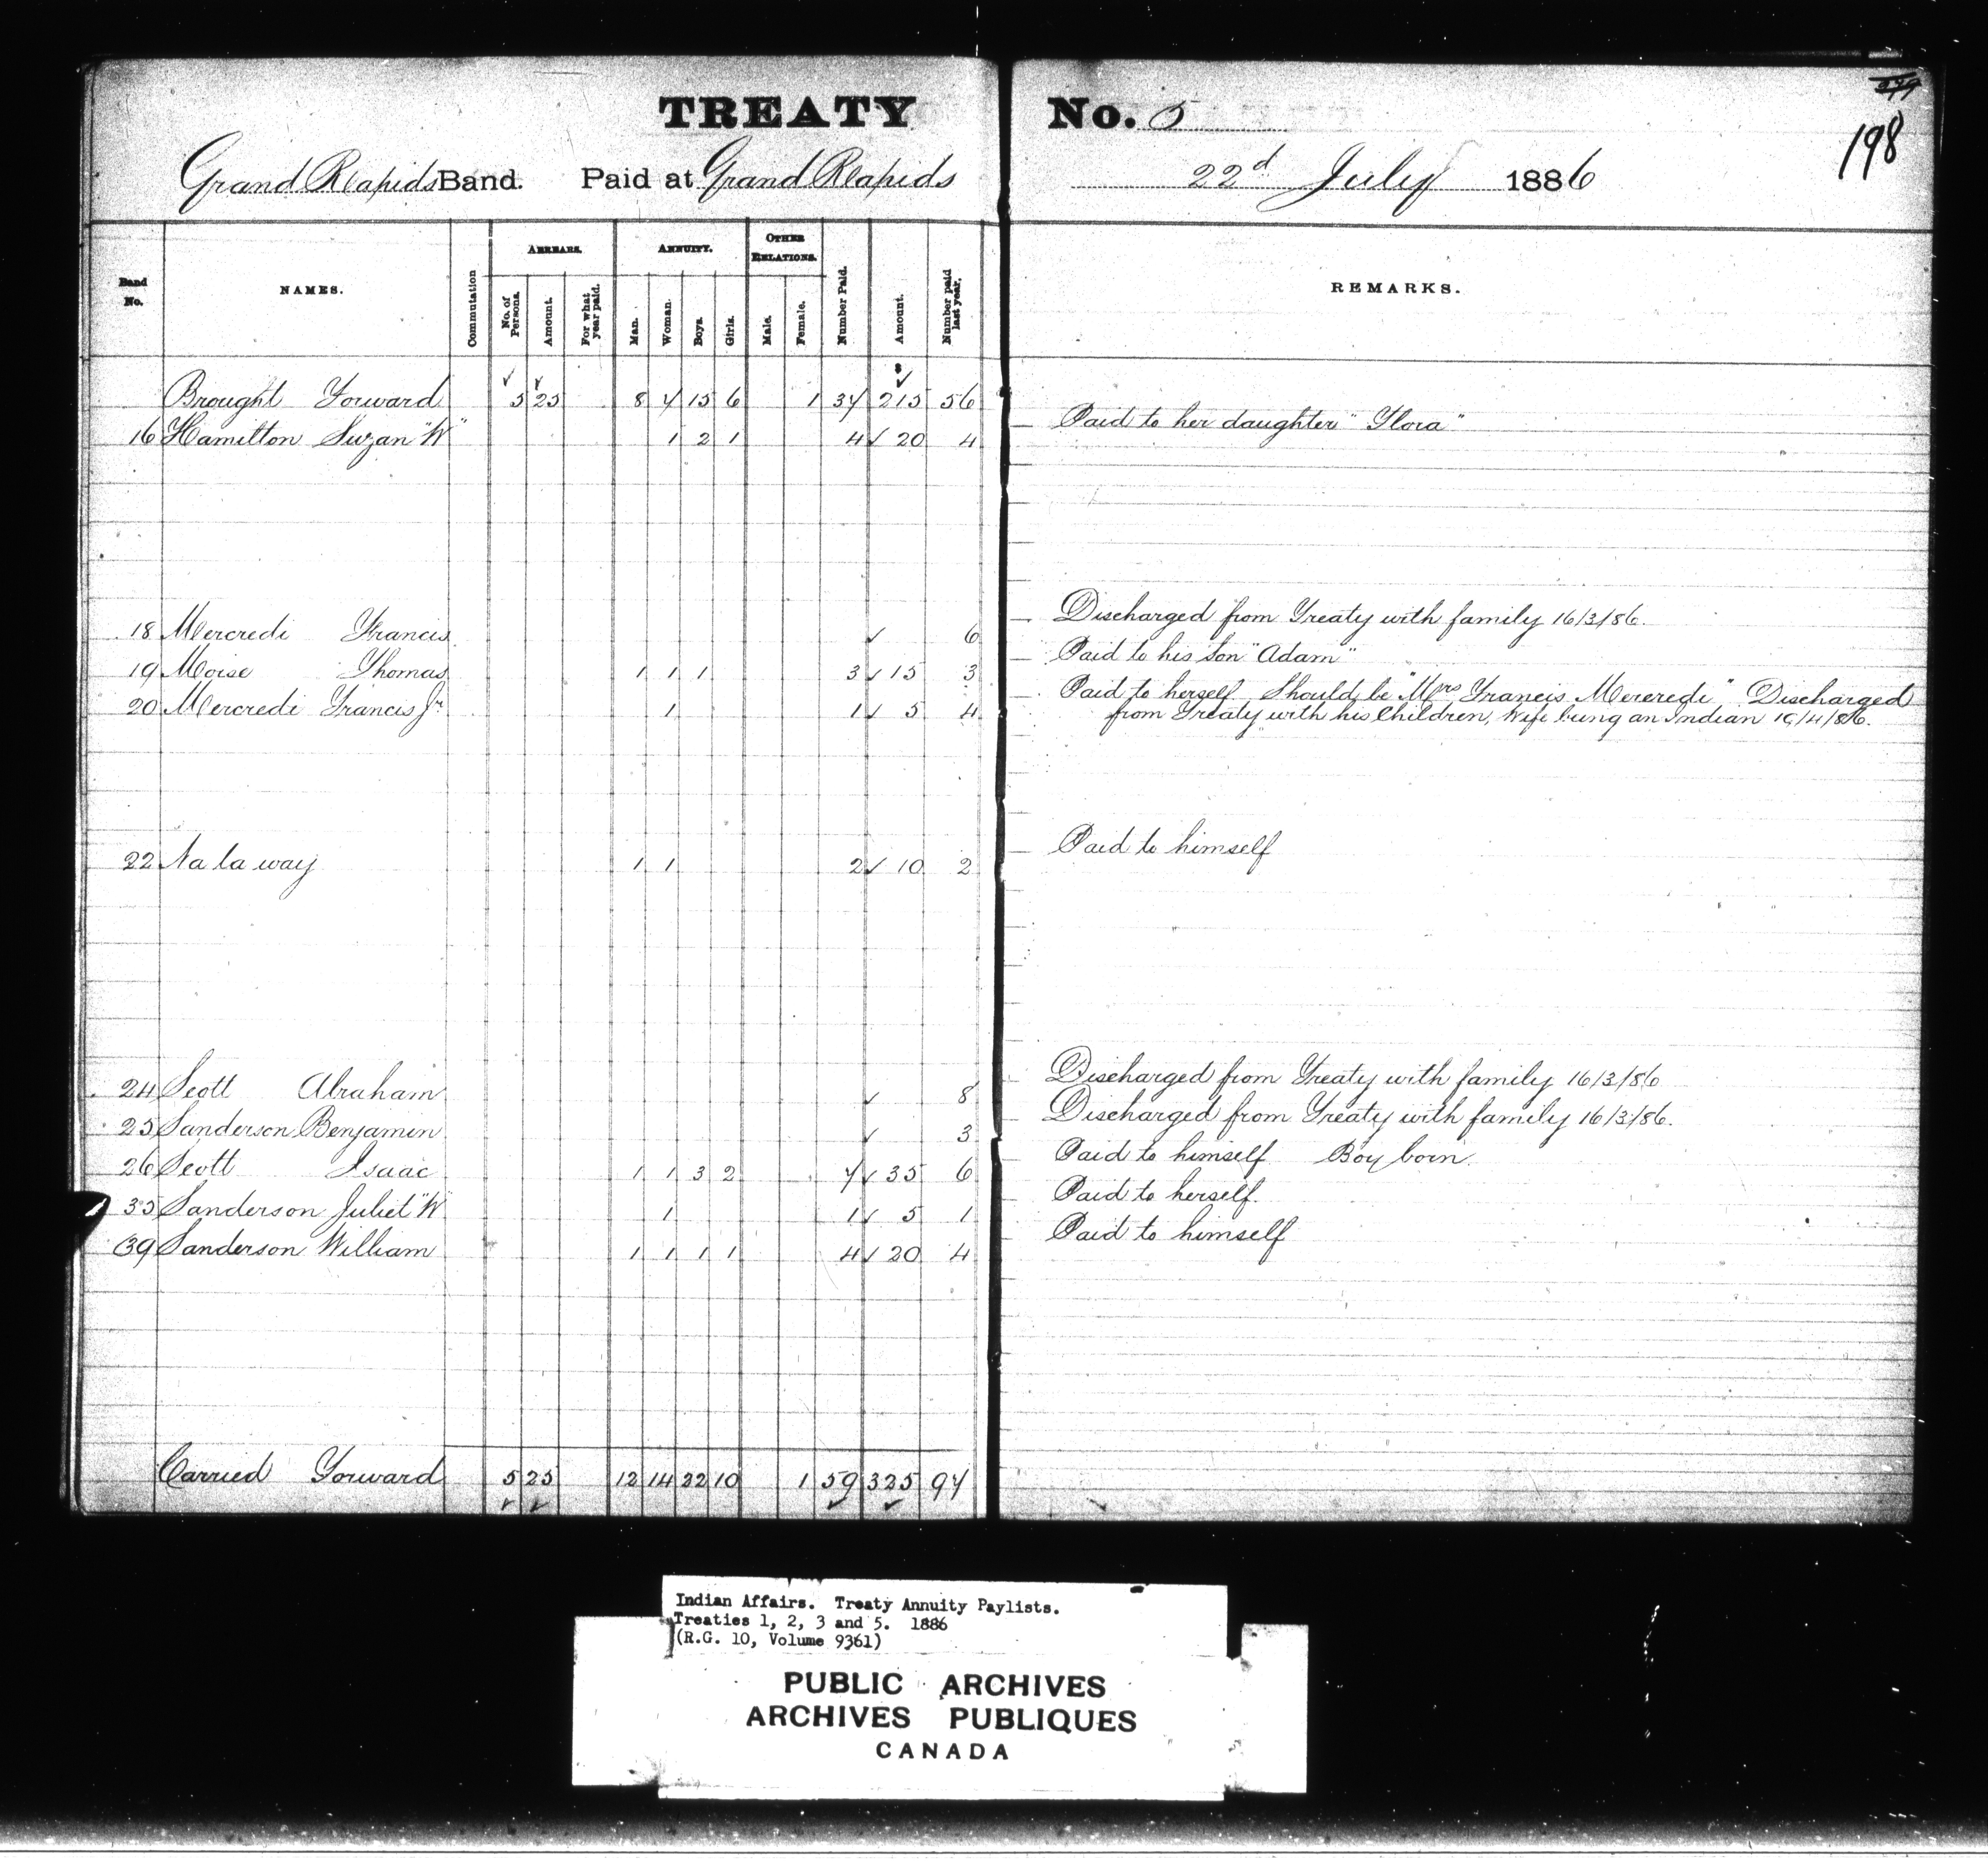 TREATY No. 5
198
Grand Rapids Band. Paid at Grand Rapids 22d July 1886
Band No. NAMES. Commutation ARREARS. No. of Persons. Amount. For what year paid. ANNUITY. Man. Woman. Boys. Girls. OTHER RELATIONS. Male. Female. Number Paid. Amount. Number paid last year. REMARKS.
Brought Forward 5 25 8 7 15 6 1 37 215 56
16 Hamilton Suzan "W" 1 2 1 4 20 4 Paid to her daughter "Flora"
18 Mercredi Francis 6 Discharged from Treaty with family 16/3/86.
19 Moise Thomas 1 1 1 3 15 3 Paid to his son "Adam"
20 Mercredi Francis Jr 1 1 5 4 Paid to herself Should be "Mrs Francis Mercredi" Discharged
from Treaty with his Children, Wife being an Indian /4/86.
22 Na ta way 1 1 2 10 2 Paid to himself
24 Scott Abraham 8 Discharged from Treaty with family 16/3/86
25 Sanderson Benjamin 3 Discharged from Treaty with family 16/3/86.
26 Scott Isaac 1 1 3 2 7 35 6 Paid to himself Boy born.
35 Sanderson Juliet "W" 1 1 5 1 Paid to herself.
39 Sanderson William 1 1 1 1 4 20 4 Paid to himself
Carried Forward 5 25 12 14 22 10 1 59 325 97
Indian Affairs. Treaty Annuity Paylists.
Treaties 1, 2, 3 and 5. 1886
(R.G. 10, Volume 9361)
PUBLIC ARCHIVES
ARCHIVES PUBLIQUES
CANADA